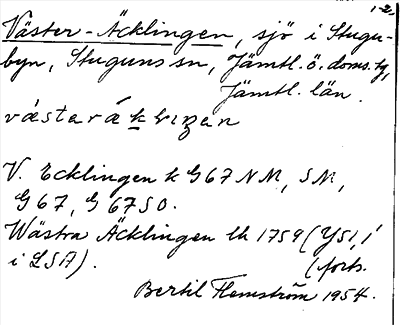 1-2,
Väster-Äcklingen, sjö i Stugu-
byn, Stuguns sn, Jämtl. ö. doms. tg,
Jämtl. län.
V. Ecklingen k G67NM, SM,
G67, G67SO.
Wästra Äcklingen lk 1759 (YS1,1
i LSA). (forts.
Bertil Flemström 1954.